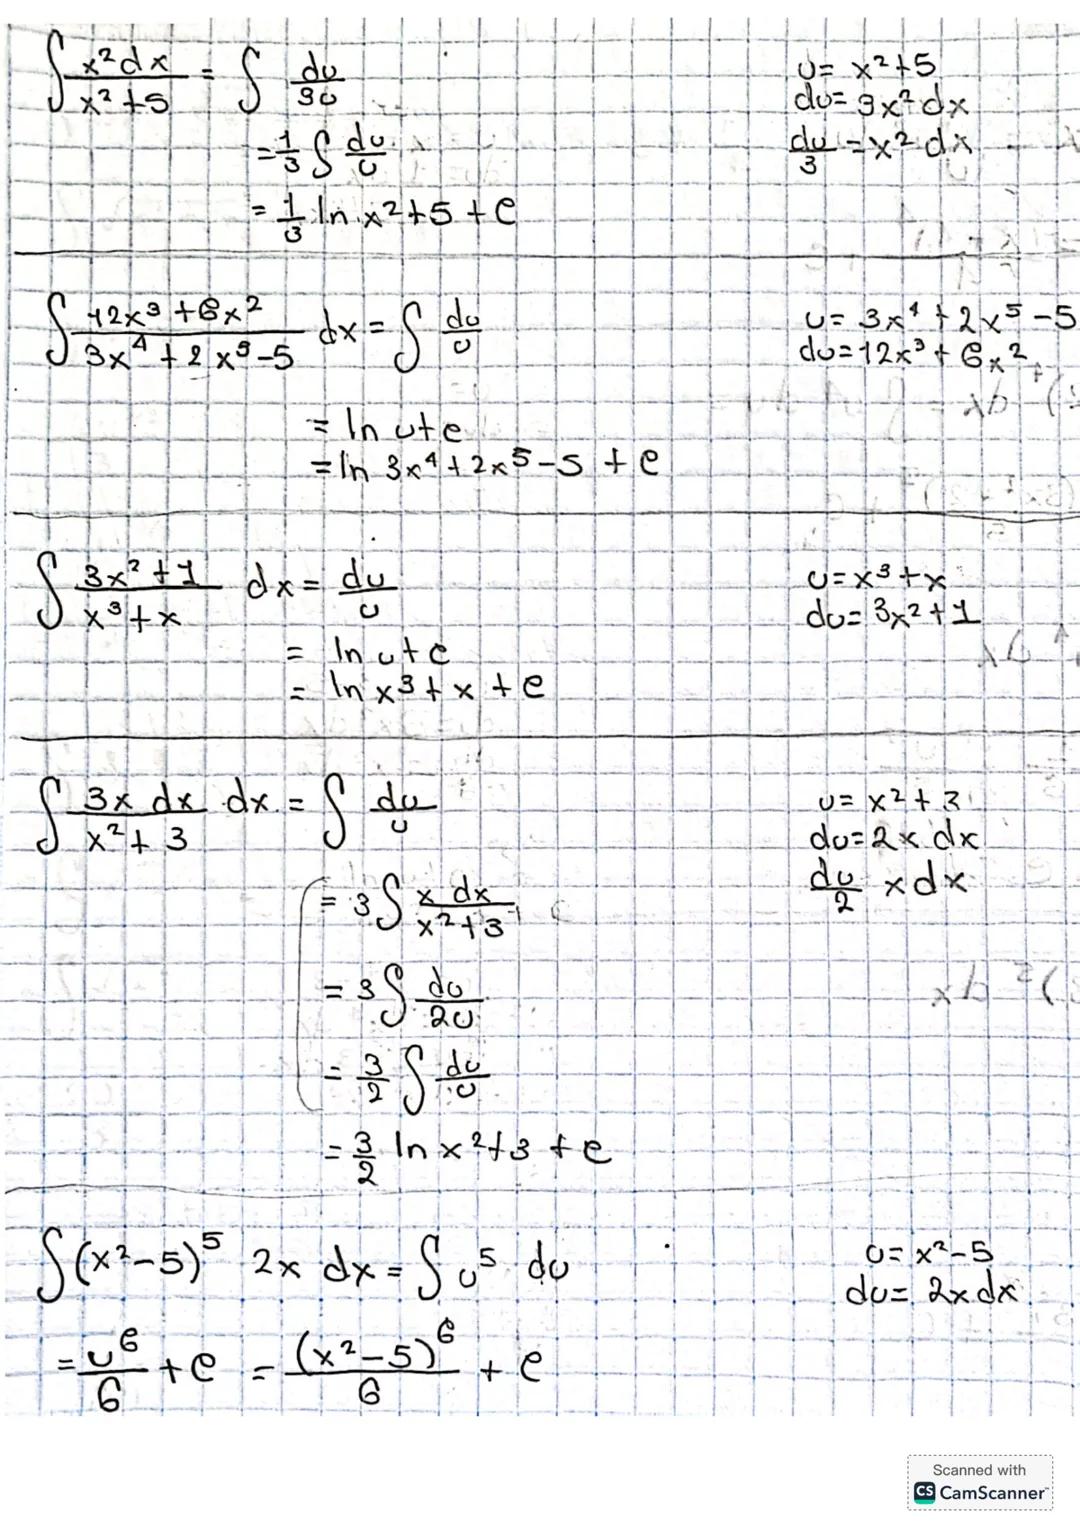 ∫ x²dx / x²+5 = ∫ du / 3u    u= x²+5
du= 3x²dx
= 1/3 ∫ du/u    du/3 = x² dx
= 1/3 ln x²+5 + c
∫ 12x³+6x² / 3x⁴+2x⁵-5 dx = ∫ du/u    u= 3x⁴+2x⁵-5
du=12x³+6x²
= ln u+c
= ln 3x⁴+2x⁵-5 + c
∫ 3x²+1 / x³+x dx = du/u    u=x³+x
du= 3x²+1
= ln u+c
= ln x³+x + c
∫ 3x dx / x²+3 dx = ∫ du/u    u= x²+3
du=2x dx
= 3∫ x dx / x²+3    du/2 x dx
= 3∫ du/2u
= 3/2 ∫ du/u
= 3/2 ln x²+3 + c
∫(x²-5)⁵ 2x dx = ∫u⁵ du    u= x²-5
du= 2x dx
= u⁶/6 + c = (x²-5)⁶/6 + c
Scanned with
CS CamScanner